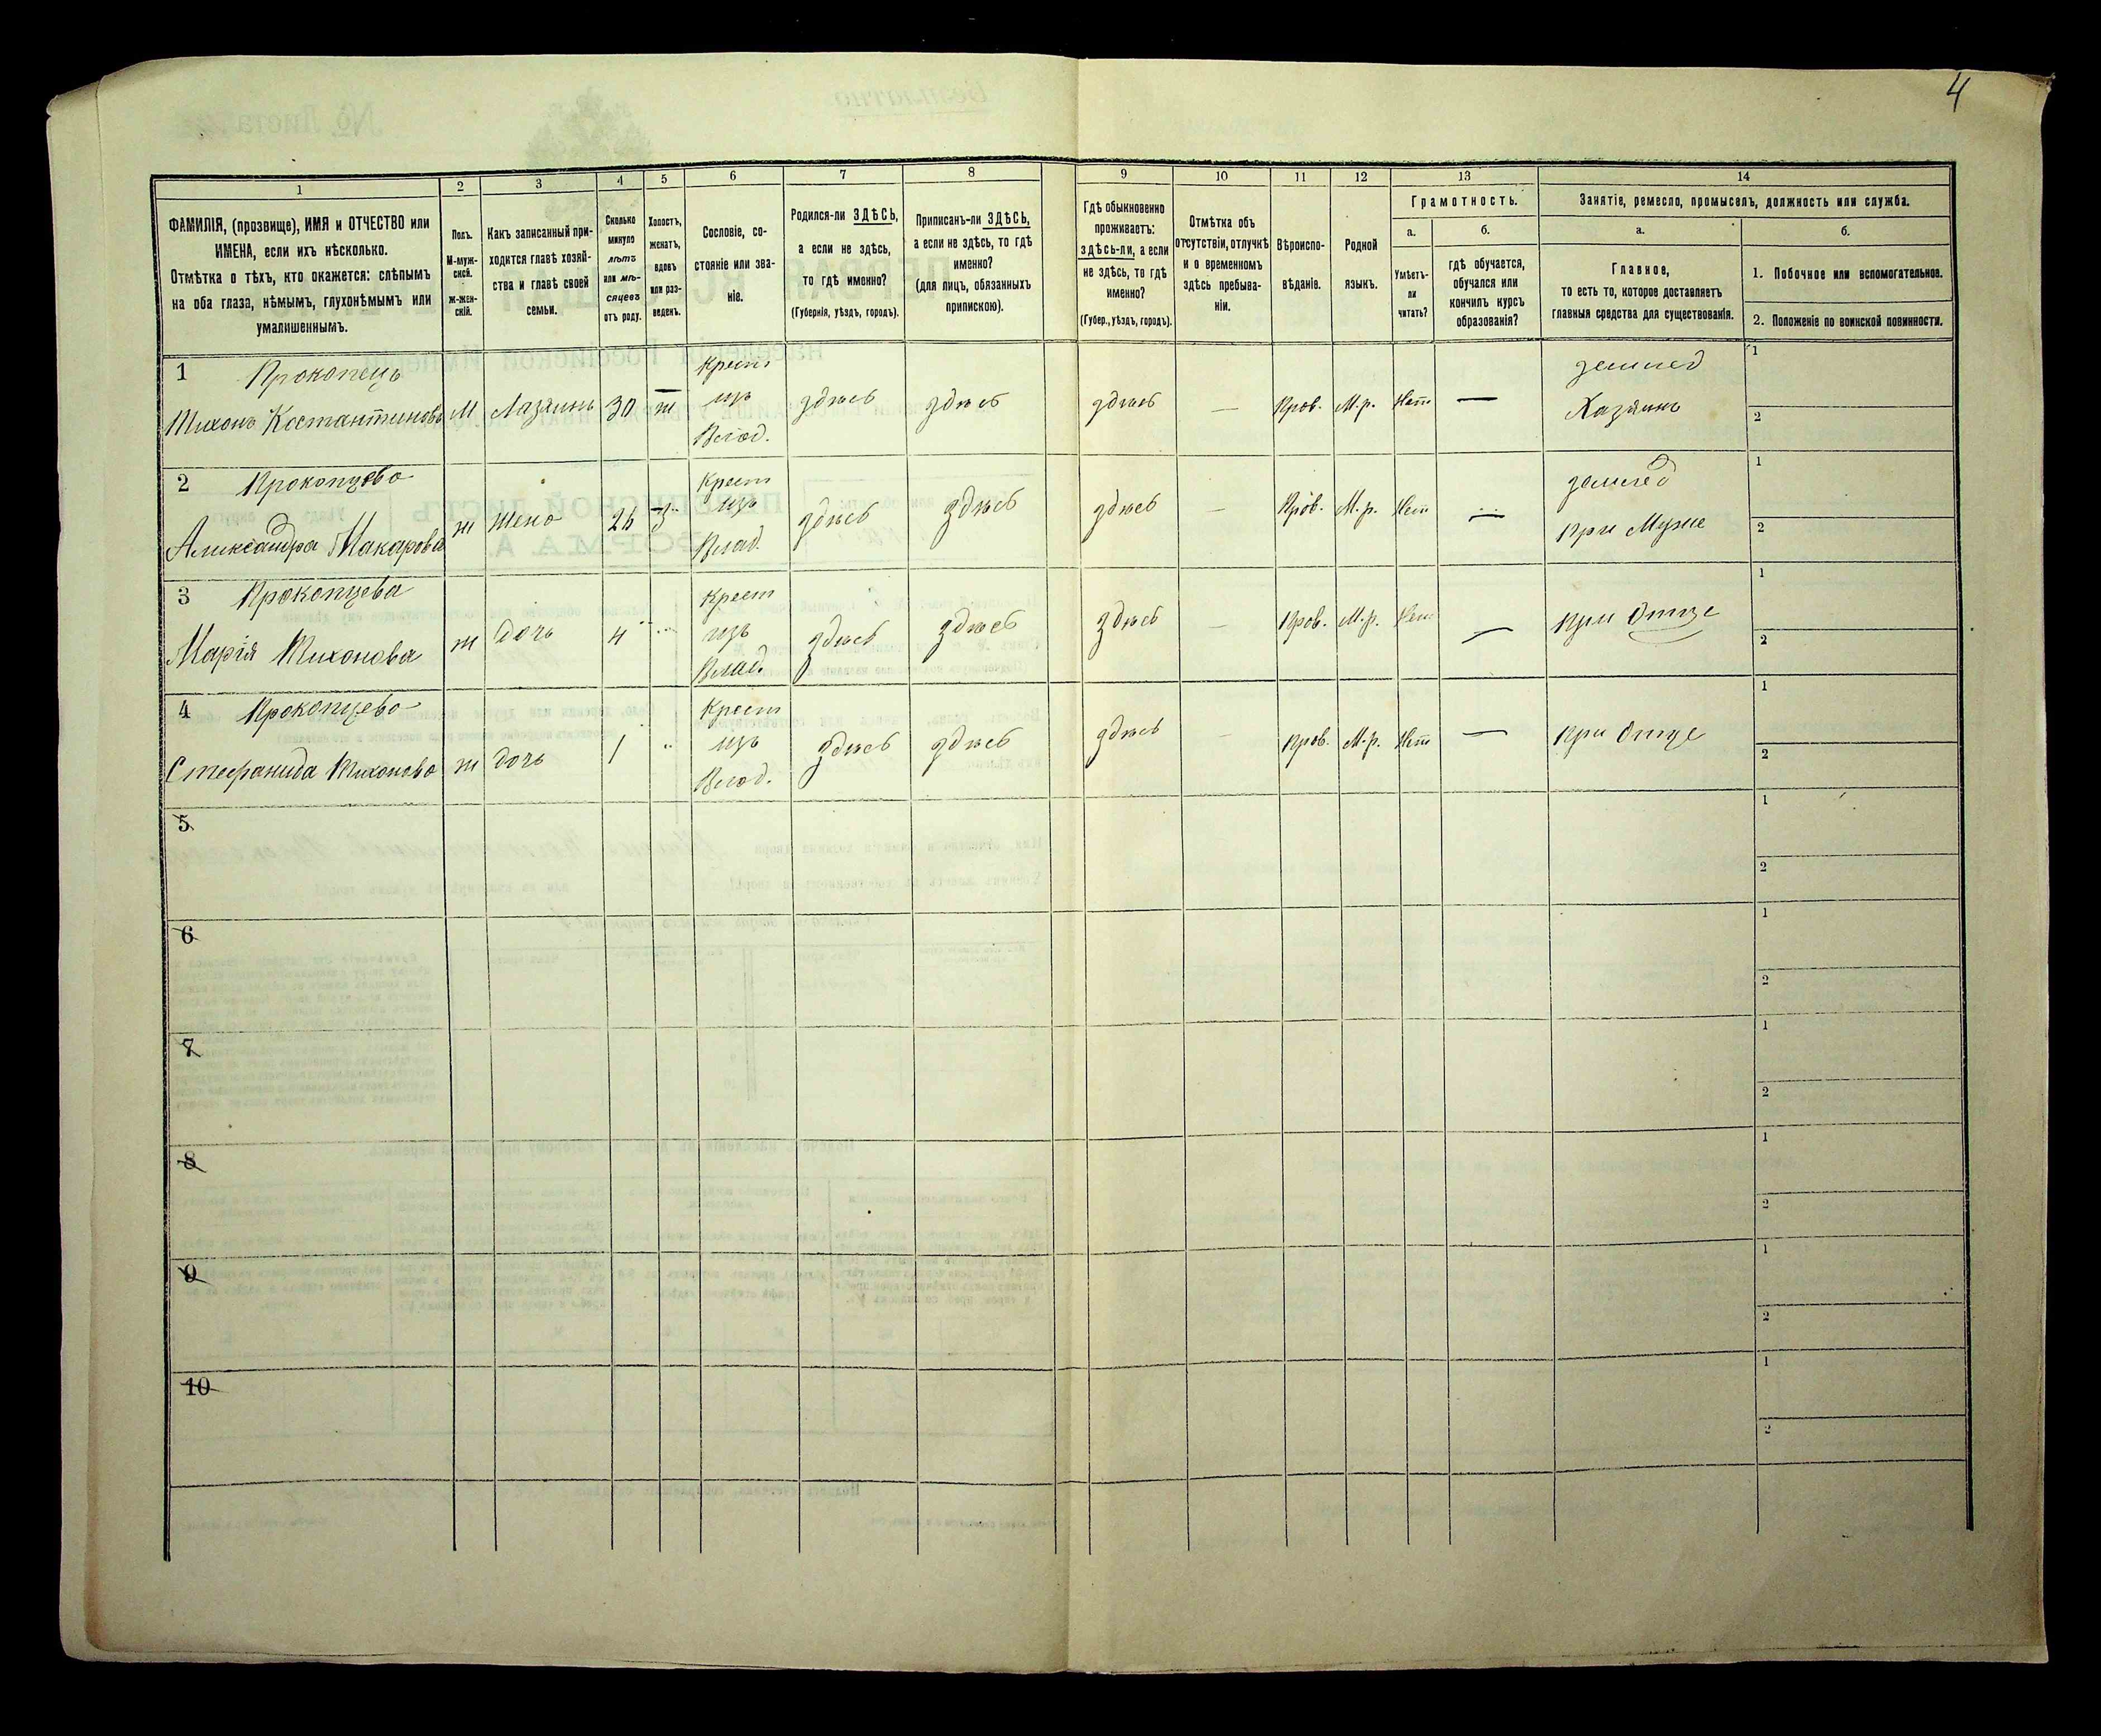 4
1 2 3 4 5 6 7 8 9 10 11 12 13 14
ФАМИЛІЯ, (прозвище), ИМЯ и ОТЧЕСТВО или
ИМЕНА, если ихъ нѣсколько.
Отмѣтка о тѣхъ, кто окажется: слѣпымъ
на оба глаза, нѣмымъ, глухонѣмымъ или
умалишеннымъ.
Полъ.
М-муж-
ской.
Ж-жен-
скій.
Какъ записанный при-
ходится главѣ хозяй-
ства и главѣ своей
семьи.
Сколько
минуло
лѣтъ
или мѣ-
сяцевъ
отъ роду.
Холостъ,
женатъ,
вдовъ
или раз-
веденъ.
Сословіе, со-
стояніе или зва-
ніе.
Родился-ли ЗДѢСЬ,
а если не здѣсь,
то гдѣ именно?
(Губернія, уѣздъ, городъ).
Приписанъ-ли ЗДѢСЬ,
а если не здѣсь, то гдѣ
именно?
(для лицъ, обязанныхъ
припискою).
Гдѣ обыкновенно
проживаетъ:
здѣсь-ли, а если
не здѣсь, то гдѣ
именно?
(Губер., уѣздъ, городъ).
Отмѣтка объ
отсутствіи, отлучкѣ
и о временномъ
здѣсь пребыва-
ніи.
Вѣроиспо-
вѣданіе.
Родной
языкъ.
Грамотность.
а.
Умѣетъ-
ли
читать?
б.
гдѣ обучается,
обучался или
кончилъ курсъ
образованія?
Занятіе, ремесло, промыселъ, должность или служба.
а.
Главное,
то есть то, которое доставляетъ
главныя средства для существованія.
б.
1. Побочное или вспомогательное.
2. Положеніе по воинской повинности.
1 Прокопецъ Крест землед 1
Тихонъ Костантиновъ М Хазяинъ 30 ж изъ здѣсь здѣсь здѣсь — Прав. М.р. Нет — Хазяинъ 2
Влад.
2 Прокопцева Крест землед 1
Александра Макарова ж Жена 26 З изъ здѣсь здѣсь здѣсь — Прав. М.р. Нет — При Муже 2
Влад.
3 Прокопцева Крест 1
Марія Тихонова ж Дочь 4 изъ здѣсь здѣсь здѣсь — Прав. М.р. Нет — При Отце 2
Влад.
4 Прокопцева Крест 1
Стефанида Тихонова ж Дочь 1 изъ здѣсь здѣсь здѣсь — Прав. М.р. Нет — При Отце 2
Влад.
5 1
2
6 1
2
7 1
2
8 1
2
9 1
2
10 1
2